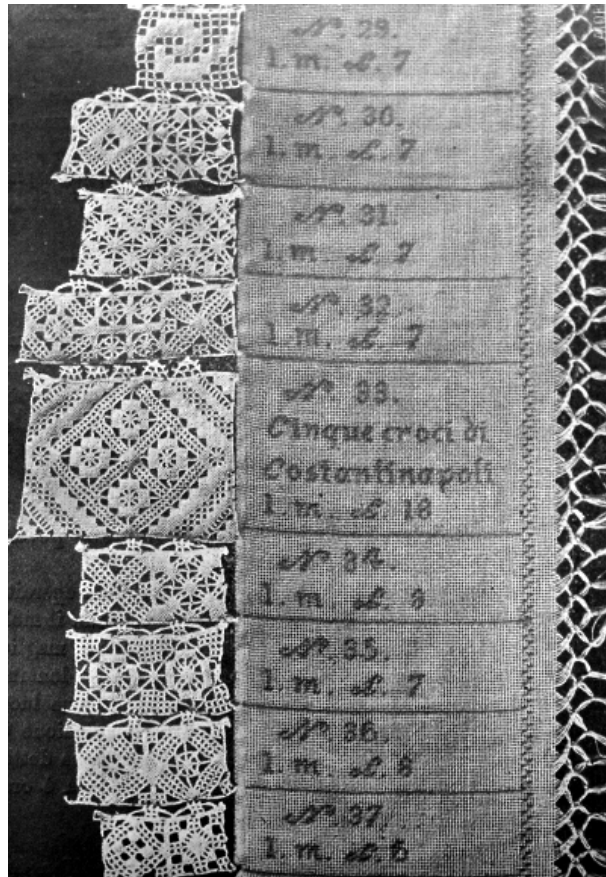 Nº. 29.
1. m. £. 7
Nº. 30.
1. m. £. 7
Nº. 31.
1. m. £. 7
Nº. 32.
1. m. £. 7
Nº. 33.
Cinque croci di
Costantinapoli
1. m. £. 18
Nº. 34.
1. m. £. 8
Nº. 35.
1. m. £. 7
Nº. 36.
1. m. £. 8
Nº. 37.
1. m. £. 6